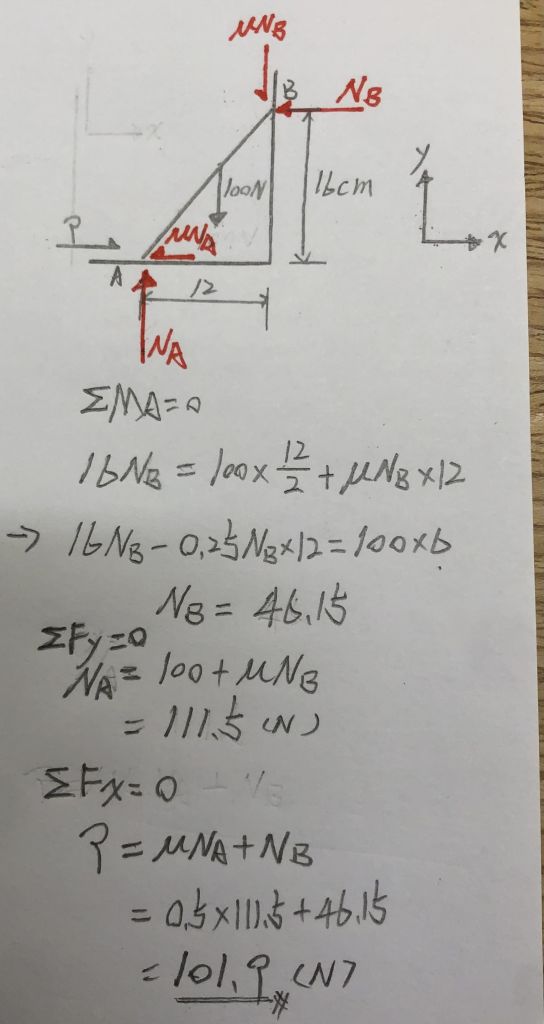 μNB
B
NB
100N
16cm
y
x
P
μNA
A
12
NA
ΣMA=0
16NB = 100× 12/2 + μNB×12
→ 16NB - 0.25NB×12 = 100×6
NB = 46.15
ΣFy=0
NA = 100+μNB
= 111.5 (N)
ΣFx=0
P = μNA+NB
= 0.5×111.5+46.15
= 101.9 (N)